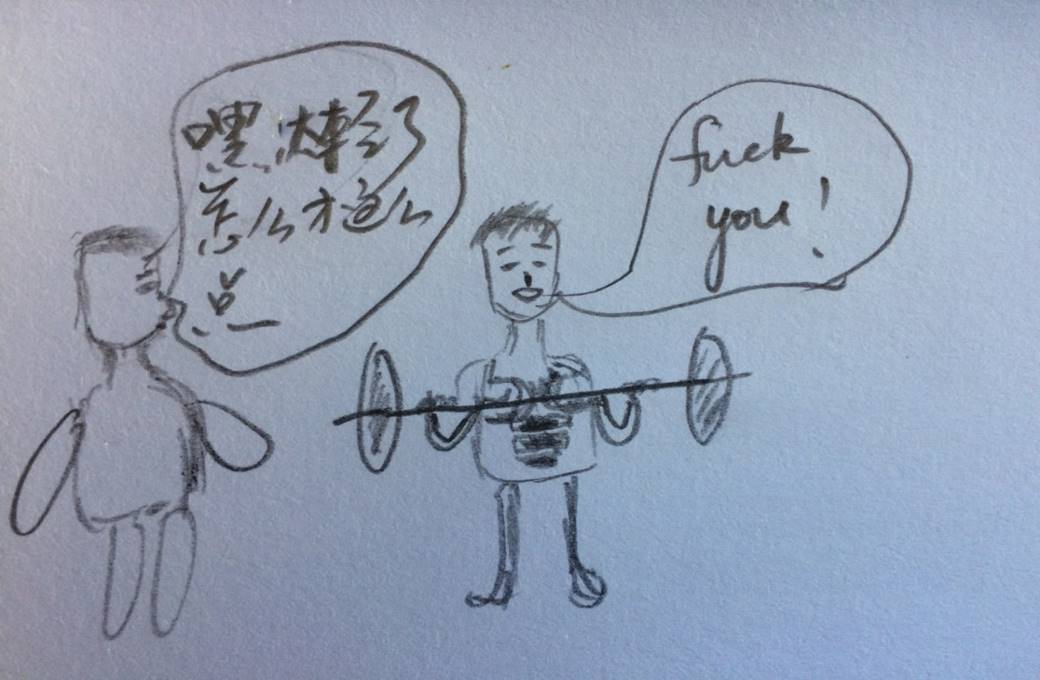 嘿,太轻了
怎么才这么
点
fuck
you!